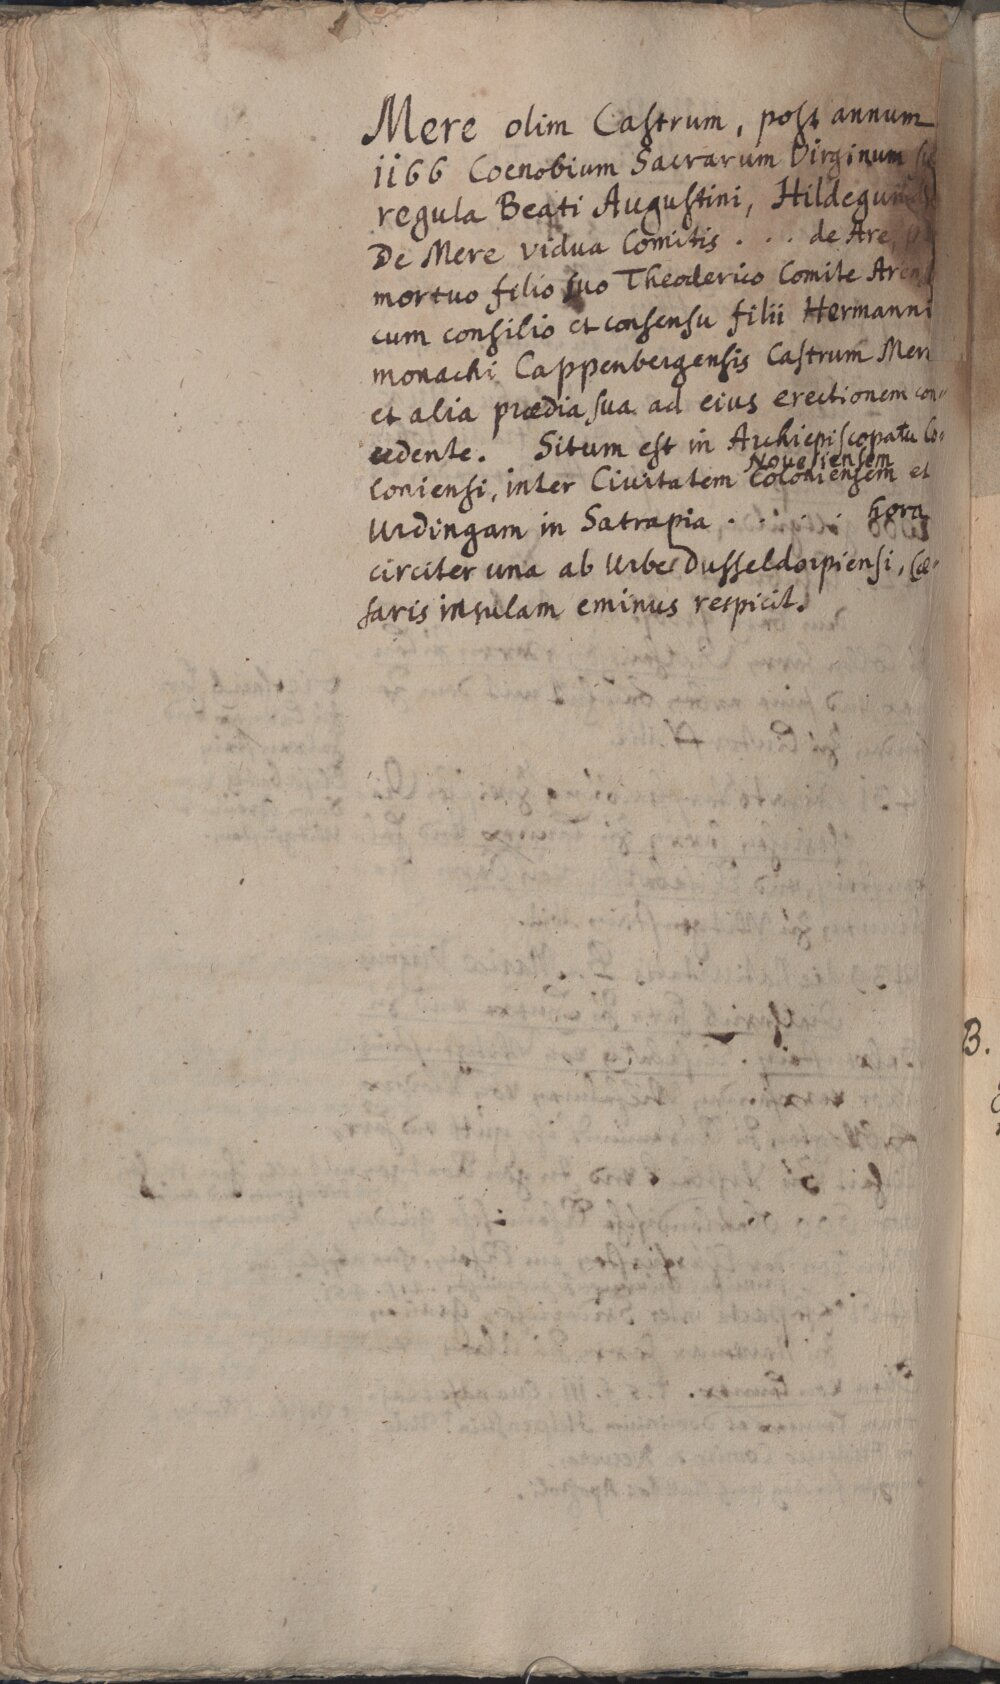 Mere olim Castrum, post annum
1166 Coenobium Sacrarum Virginum
regula Beati Augustini,
De Mere vidua Comitis . . . de Are,
mortuo filio suo Theoderico Comite
cum consilio et consensu filii Hermanni
monachi Cappenbergensis Castrum
et alia prædia sua ad eius erectionem con-
cedente. Situm est in Archiepiscopatu Co-
loniensi, inter Civitatem Coloniensem et
Novesiensem
Urdingam in Satrapia . . . . . hora
circiter una ab Urbe Dusseldorpiensi, Cæ-
saris insulam eminus respicit.
B.